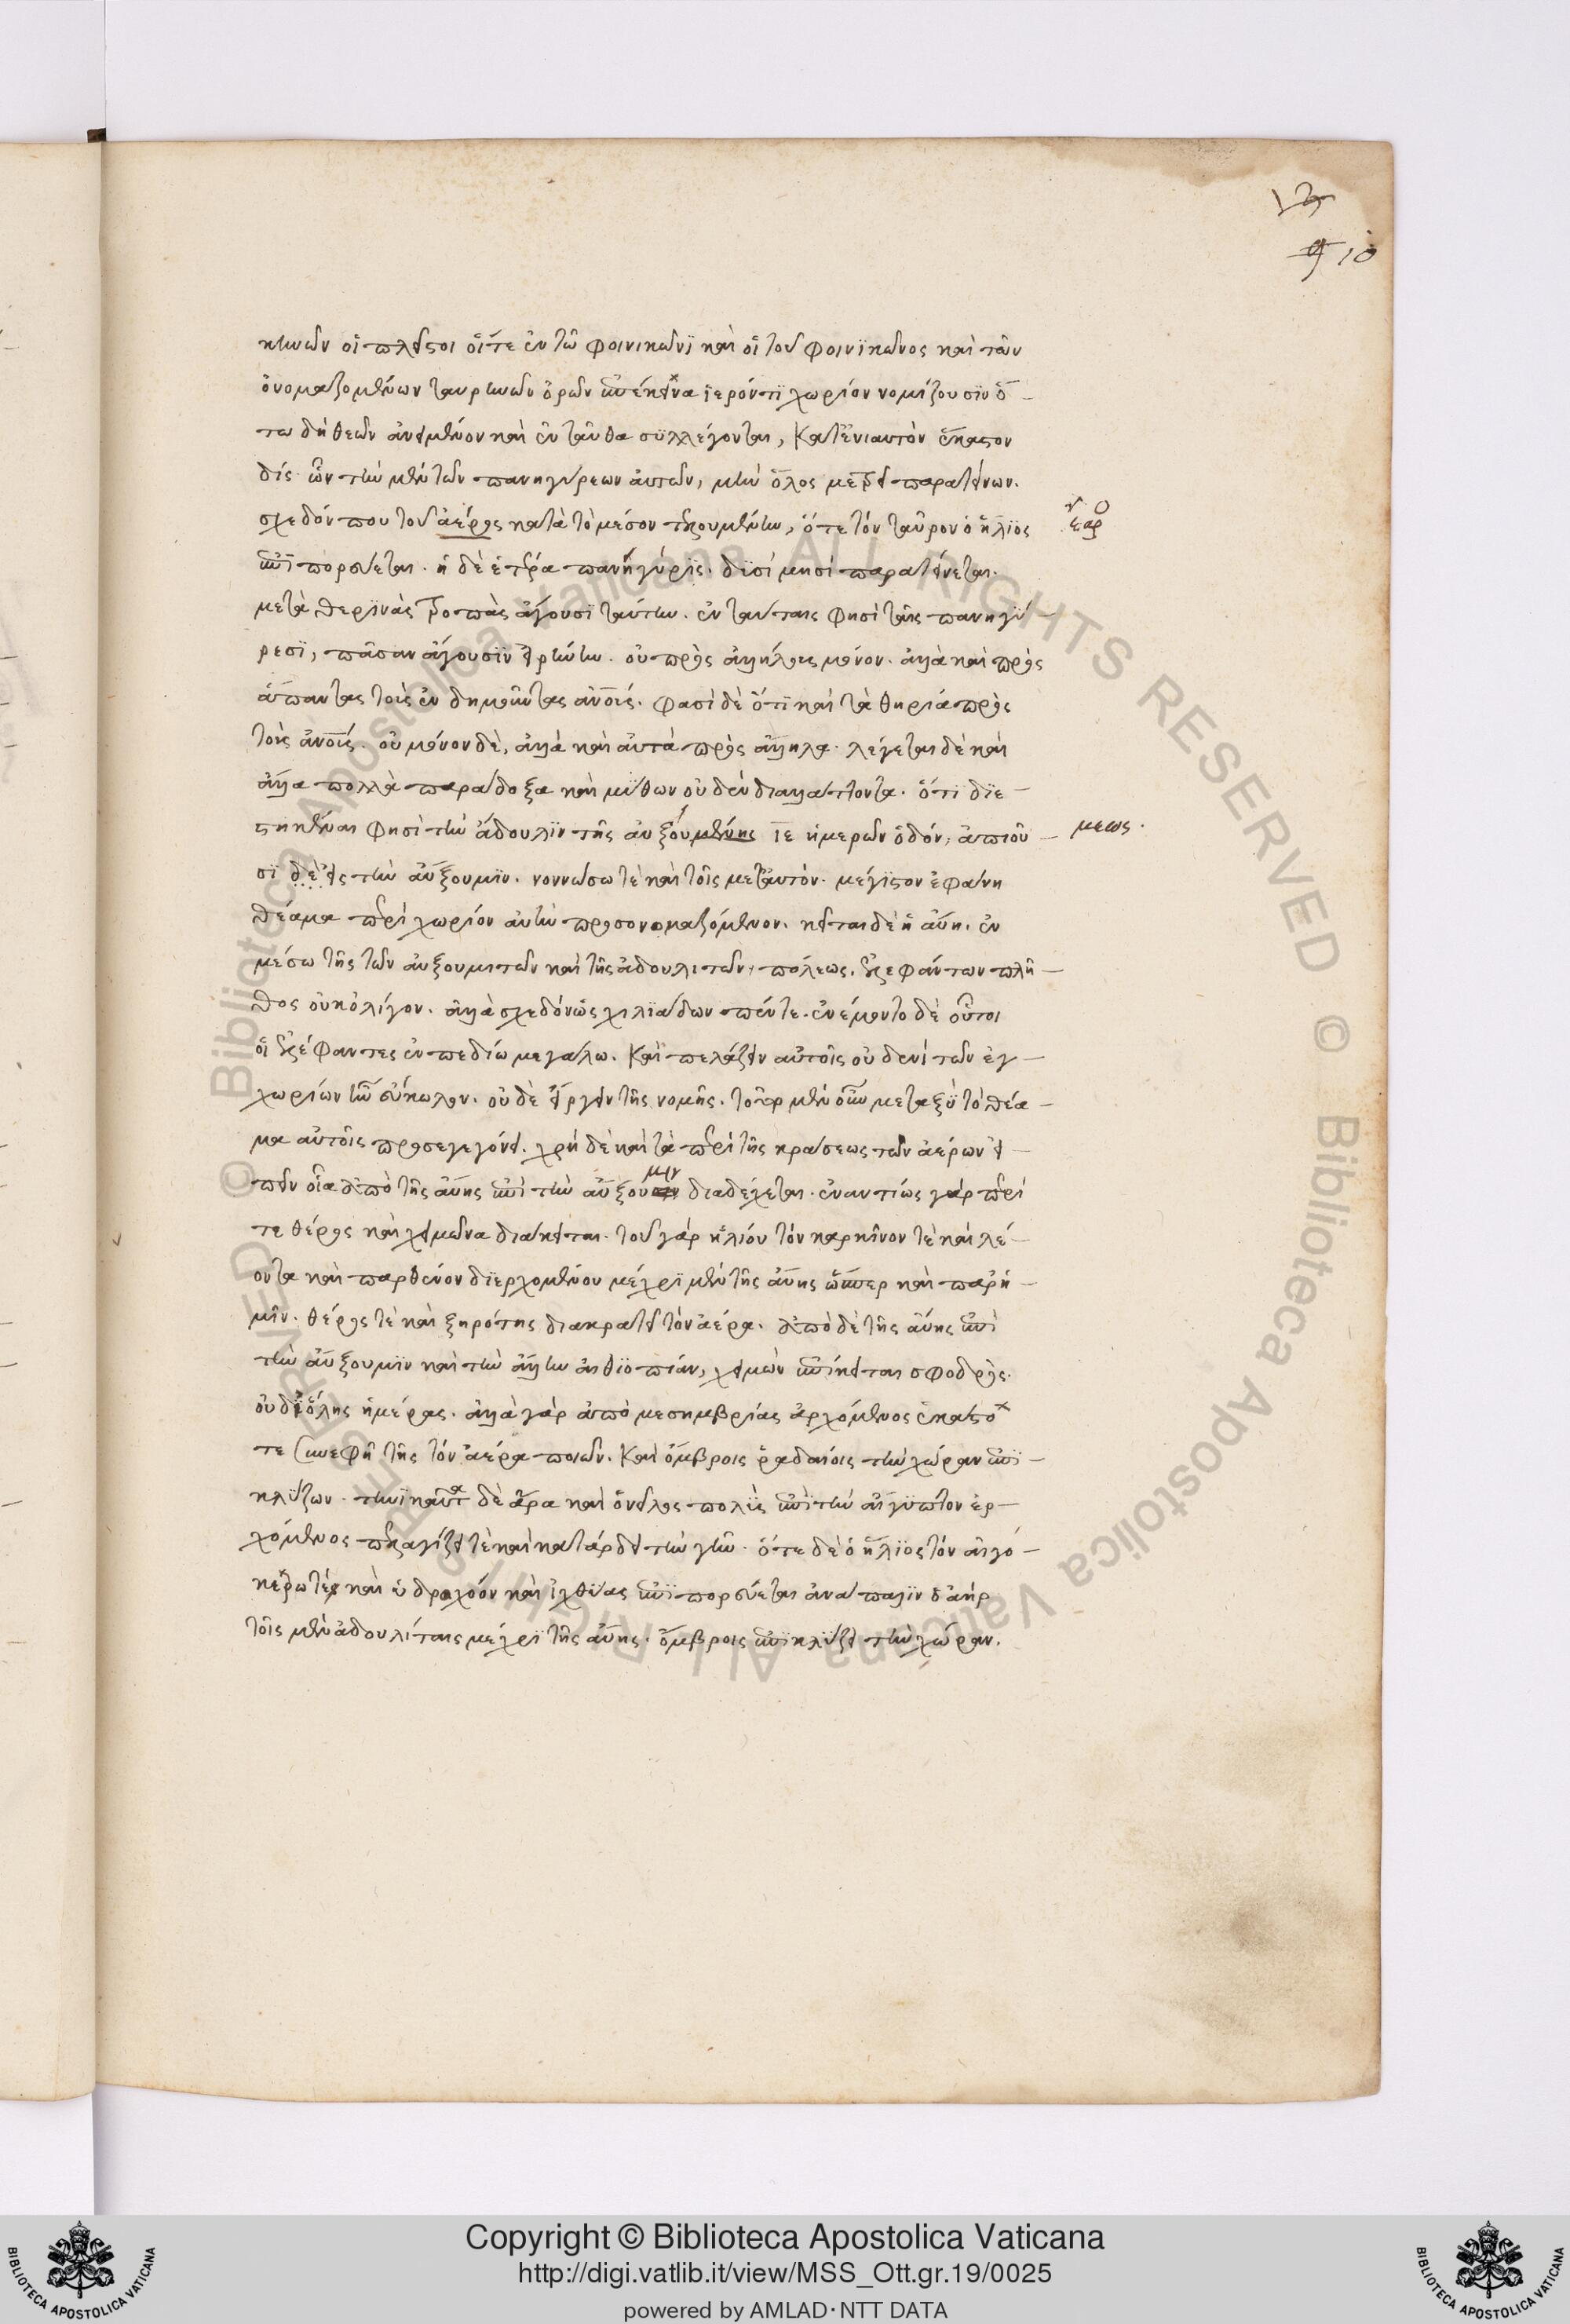 κηνῶν οἱ πλεῖστοι οἵτε ἐν τῶ φοινικῶνϊ καὶ οἱ τοῦ φοινϊκῶνος καὶ τῶν
ὀνομαζομένων ταυρηνῶν ὀρῶν ἐπέκεινα ἱερόντϊ χωρίον νομίζουσϊν ὅ-
τω δὴ θεῶν ἀνειμένον καὶ ἐνταῦθα συλλέγονται, κατ' ἐνιαυτὸν ἕκαστον
δίς· ὧν τὴν μὲν τῶν πανηγύρεων αὐτῶν, μὴν ὅλος μετρεῖ παρατείνων.
σχεδόν που τοῦ ἀέρος κατὰ τὸ μέσον τελουμένην, ὅτε τὸν ταῦρον ὁ ἥλϊος
ἐαρ
ἐπϊπορεύεται. ἡ δὲ ἑτέρα πανήγύρϊς. δϊσί μησί παρατείνεται.
μετὰ θερϊνὰς τροπὰς ἄγουσϊ ταύτην. ἐν ταύταις φησὶ ταῖς πανηγϋ-
ρεσϊ, πᾶσαν ἄγουσϊν εἰρήνην. οὐ πρὸς ἀλλήλους μόνον. ἀλλὰ καὶ πρὸς
ἅπαντας τοὺς ἐνδημοῦντας ἀνους. φασὶ δὲ ὅτϊ καὶ τὰ θηρία πρὸς
τοὺς ἀνους. οὐ μόνον δὲ, ἀλλὰ καὶ αὐτὰ πρὸς ἄλληλα. λέγεται δὲ καὶ
ἄλλα πολλὰ παράδοξα καὶ μύθων οὐδὲν διαλλάττοντα. ὅτϊ δϊε-
στηκέναι φησὶ τὴν ἄδουλϊν τῆς αὐξουμένης ιε ἡμερῶν ὁδόν, ἀπιοῦ-
μεως.
σϊ δὲ εἰς τὴν αὔξουμϊν. νοννώσω τὲ καὶ τοῖς μετ' αὐτόν. μέγϊστον ἐφάνη
θέαμα περὶ χωρίον αὐὴν προσονομαζόμενον. κεῖται δὲ ἡ αὔη. ἐν
μέσω τῆς τῶν αὐξουμιτῶν καὶ τῆς ἀδουλιτῶν, πόλεως. ἐλεφάντων πλῆ-
θος οὐκ ὀλίγον. ἀλλὰ σχεδόν ὡς χιλϊάδων πέντε. ἐνέμοντο δὲ οὗτοι
οἱ ἐλέφαντες ἐν πεδίω μεγάλω. Καὶ πελάζειν αὐτοῖς οὐδενὶ τῶν ἐγ-
χωρίων ἦν εὔκωλον. οὐδὲ εἴργειν τῆς νομῆς. τοῦτο μὲν οὖν μεταξὺ τὸ θέα-
μα αὐτοῖς προσεγεγόνει. χρὴ δὲ καὶ τὰ περὶ τῆς κράσεως τῶν ἀέρων εἰ-
πεῖν οἷα ἀπὸ τῆς αὔης ἐπὶ τὴν αὔξουμιν διαδέχεται. ἐναντίως γὰρ περὶ
τε θέρος καὶ χειμῶνα διάκειται. τοῦ γὰρ ἡλίου τὸν καρκῖνον τὲ καὶ λέ-
οντα καὶ παρθένον δϊερχομένου μέχρϊ μὲν τῆς αὔης ὥσπερ καὶ παρ' ἡ-
μῖν. θέρος τὲ καὶ ξηρότης διακρατεῖ τὸν ἀέρα. ἀπὸ δὲ τῆς αὔης ἐπὶ
τὴν αὔξουμϊν καὶ τὴν ἄλλην αἰθϊοπίαν, χειμὼν ἐπίκειται σφοδρὸς.
οὐ δϊ' ὅλης ἡμέρας. ἀλλὰ γὰρ ἀπὸ μεσημβρίας ἀρχόμενος ἑκάστο
τε συνεφῆ τὴς τὸν ἀέρα ποιῶν. Καὶ ὄμβροις ῥαδαίοις τὴν χώραν ἐπϊ-
κλύζων. τηνϊκαῦτα δὲ ἄρα καὶ ὁ νεῖλος πολὺς ἐπὶ τὴν αἴγυπτον ἐρ-
χόμενος πελαγίζει τὲ καὶ κατάρδει τὴν γῆν. ὅτε δὲ ὁ ἥλϊος τὸν αἰγό-
κερω τὲ καὶ ὑδροχόον καὶ ἰχθύας ἐπϊπορεύεται ἀνάπαλϊν ὁ ἀὴρ
τοῖς μὲν ἀδουλίταις μέχρϊ τῆς αὔης. ὄμβροις ἐπϊκλύζει τὴν χώραν.
Copyright © Biblioteca Apostolica Vaticana
http://digi.vatlib.it/view/MSS_Ott.gr.19/0025
powered by AMLAD·NTT DATA